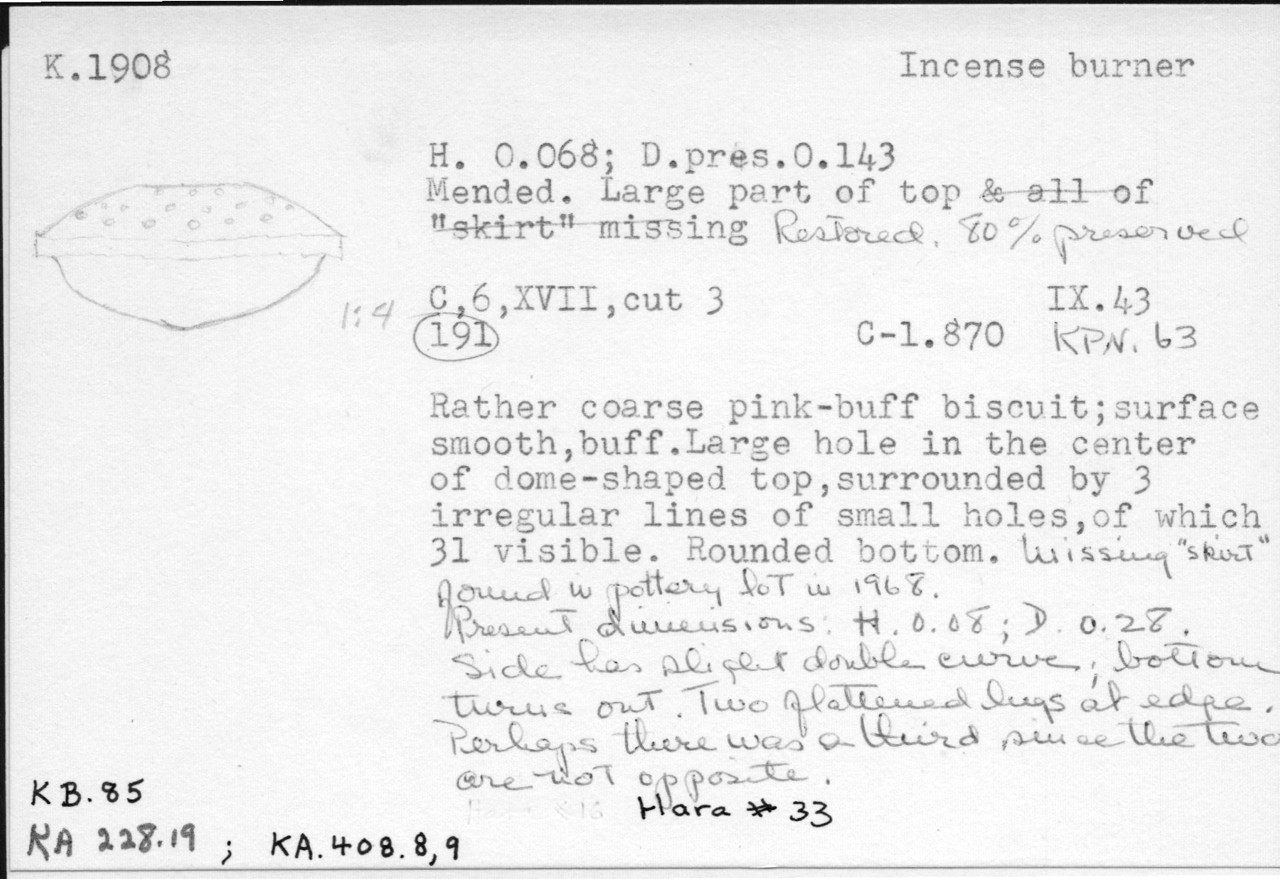 K.1908
Incense burner
H. 0.068; D.pres.0.143
Mended. Large part of top & all of
"skirt" missing Restored. 80% preserved
1:4
C,6,XVII,cut 3 IX.43
191 C-1.870 KPN. 63
Rather coarse pink-buff biscuit;surface
smooth,buff.Large hole in the center
of dome-shaped top,surrounded by 3
irregular lines of small holes,of which
31 visible. Rounded bottom. Missing "skirt"
found in pottery lot in 1968.
Present dimensions: H. 0.08; D. 0.28.
Side has slight double curve; bottom
turns out. Two flattened lugs at edge.
Perhaps there was a third since the two
are not opposite.
Hara # 33
KB.85
KA 228.19 ; KA.408.8,9